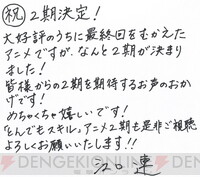 ㊗ 2期決定！
大好評のうちに最終回をむかえた
アニメですが、なんと2期が決まり
ました！
皆様からの2期を期待するお声のおか
げです！
めちゃくちゃ嬉しいです！
『とんでもスキル』アニメ2期も是非ご視聴
よろしくお願いいたします!!
江口 連
DENGEKIONLINE